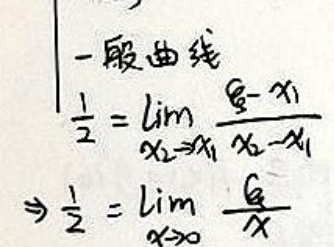 一般曲线
1/2 = lim_{x₂→x₁} (ξ - x₁)/(x₂ - x₁)
⇒ 1/2 = lim_{x→0} ξ/x